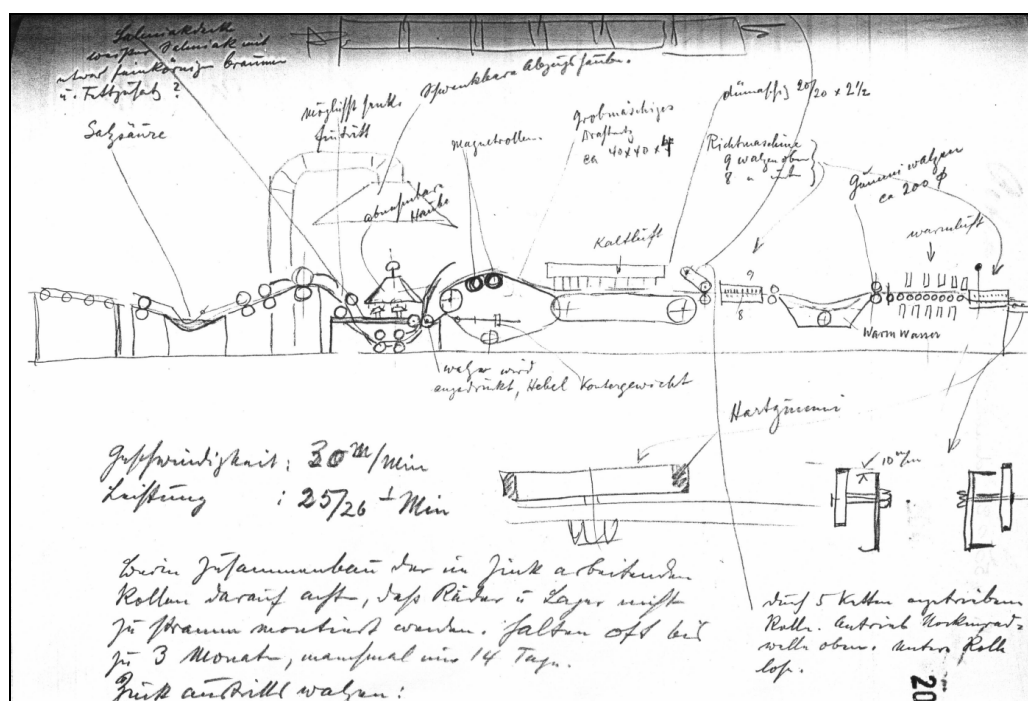 Salmiakdecke
weißer Salmiak mit
etwas feinkörnig braunem
u. Fettzusatz ?
Salzsäure
möglichst senk.
Eintritt
Schwenkbare Abzugshaube.
abnehmbare
Haube
Magnetrollen.
Grobmaschiges
Drahtnetz
ca 40x40x4
dünmaschig 20/20 x 2 1/2
Richtmaschine
9 walzen oben
8 " unten
Gummiwalzen
ca 200 φ
warmluft
Kaltluft
9
8
Warm Wasser
walze wird
angedrückt, Hebel Kontergewicht
Hartgummi
10 m/m
Geschwindigkeit: 30 m/min
Leistung : 25/26 t Min
Beim Zusammenbau der im Zink arbeitenden
Rollen darauf acht, daß Räder u Lager nicht
zu stramm montiert werden. Halten oft bis
zu 3 Monate, manchmal nur 14 Tage.
Zink austritt walzen:
durch 5 Ketten angetriebene
Rolle. Antrieb
welle oben. untere Rolle
lose.
20